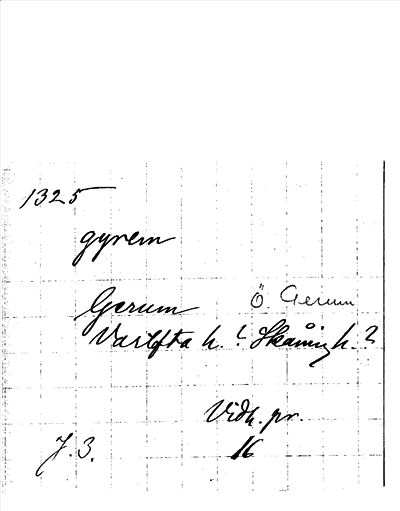 1325
gyrem
Gerum Ö. Gerum
Vartofta h.? Skåning h.?
Vidh. pr.
J. 3. 16